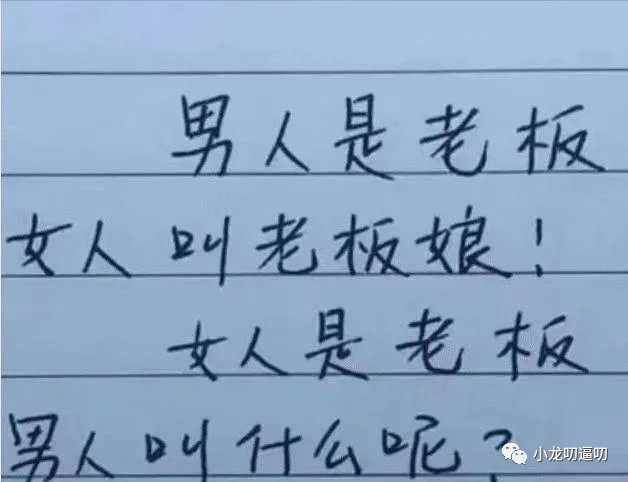 男人是老板
女人叫老板娘！
女人是老板
男人叫什么呢？
小龙叨逼叨